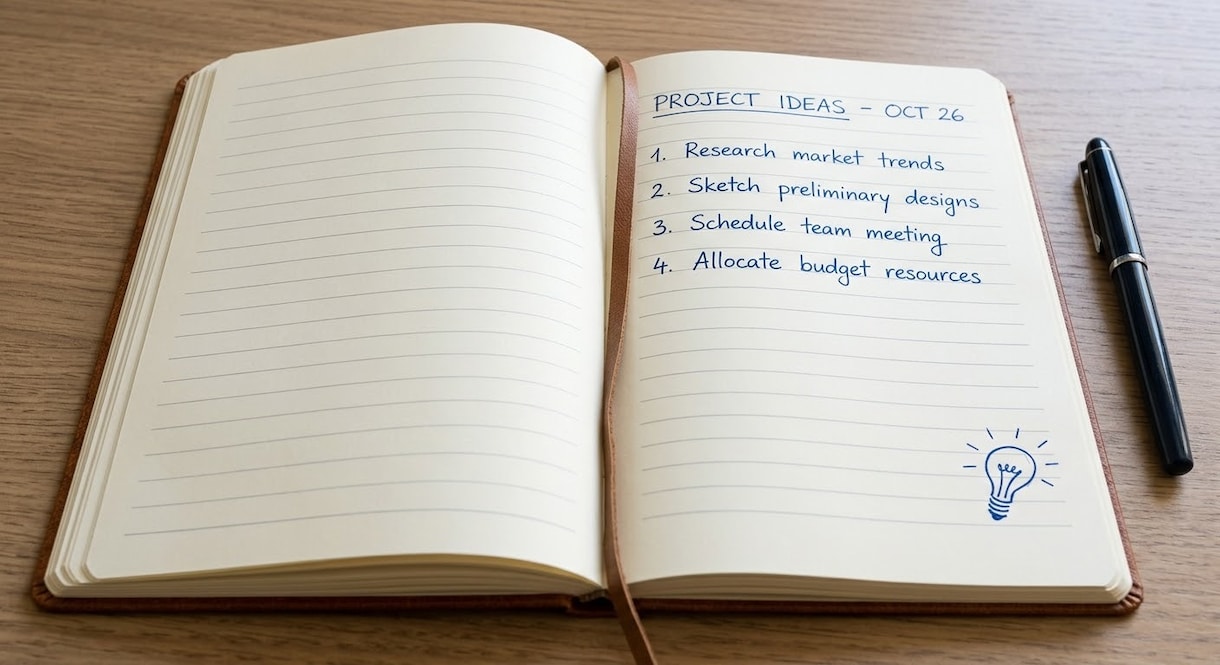 PROJECT IDEAS – OCT 26
1. Research market trends
2. Sketch preliminary designs
3. Schedule team meeting
4. Allocate budget resources